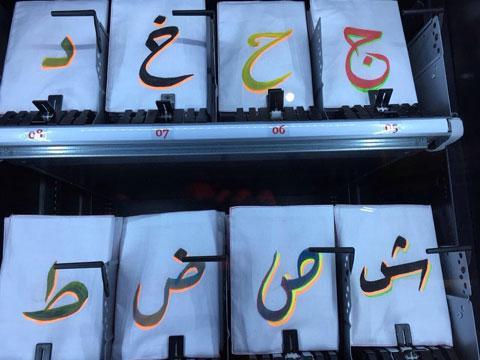 ج ح خ د
05 06 07 08
ش ص ض ط